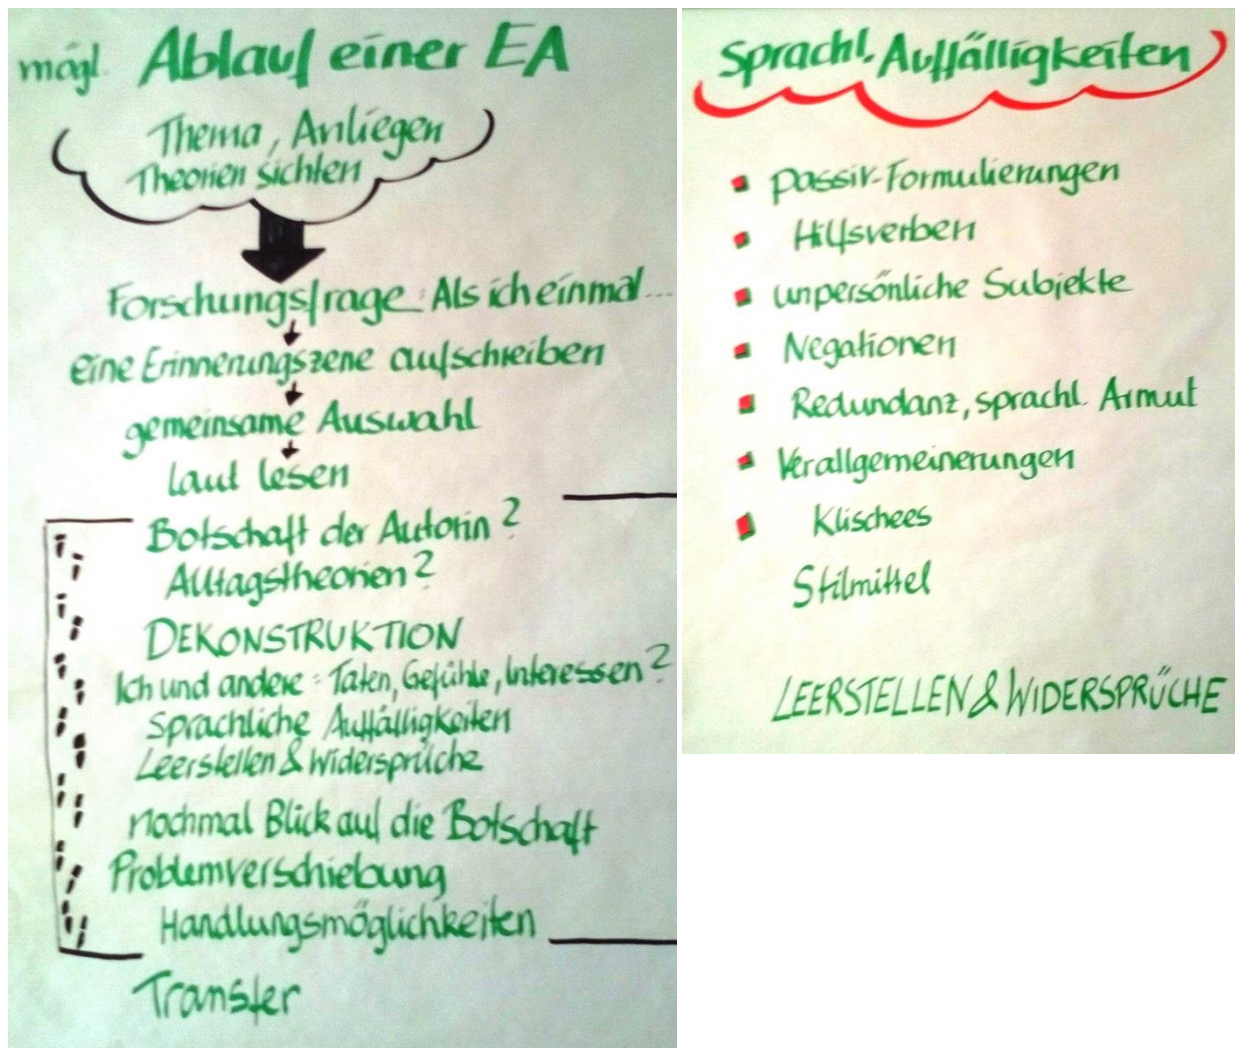 mögl. Ablauf einer EA
Thema, Anliegen
Theorien sichten
Forschungsfrage: Als ich einmal...
eine Erinnerungszene aufschreiben
gemeinsame Auswahl
laut lesen
Botschaft der Autorin?
Alltagstheorien?
DEKONSTRUKTION
Ich und andere: Taten, Gefühle, Interessen?
Sprachliche Auffälligkeiten
Leerstellen & Widersprüche
nochmal Blick auf die Botschaft
Problemverschiebung
Handlungsmöglichkeiten
Transfer
Sprachl. Auffälligkeiten
passiv-Formulierungen
Hilfsverben
unpersönliche Subjekte
Negationen
Redundanz, sprachl. Armut
Verallgemeinerungen
Klischees
Stilmittel
LEERSTELLEN & WIDERSPRÜCHE